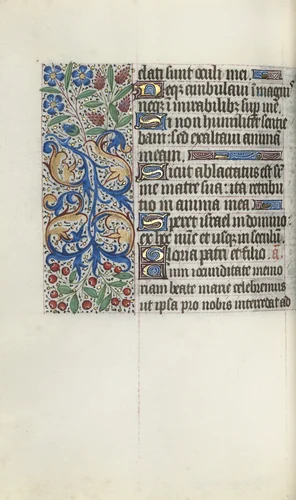 elati sunt oculi mei.
Neq; ambulaui i magnis
neq; i mirabilib; sup me.
Si non humiliter sentie
bam: sed exaltaui anima
meam.
Sicut ablactatus est su
me matre sua: ita retribu
tio in anima mea
Speret israel in domino:
ex hoc nunc et usq; in seculum.
Gloria patri et filio. a.
Cum iocunditate memo
riam beate marie celebremus
ut ipsa pro nobis intercedat ad